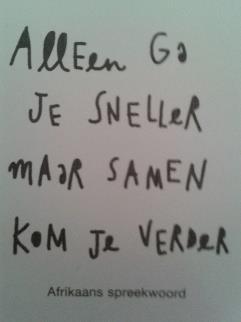 Alleen ga
je sneller
maar samen
kom je verder
Afrikaans spreekwoord